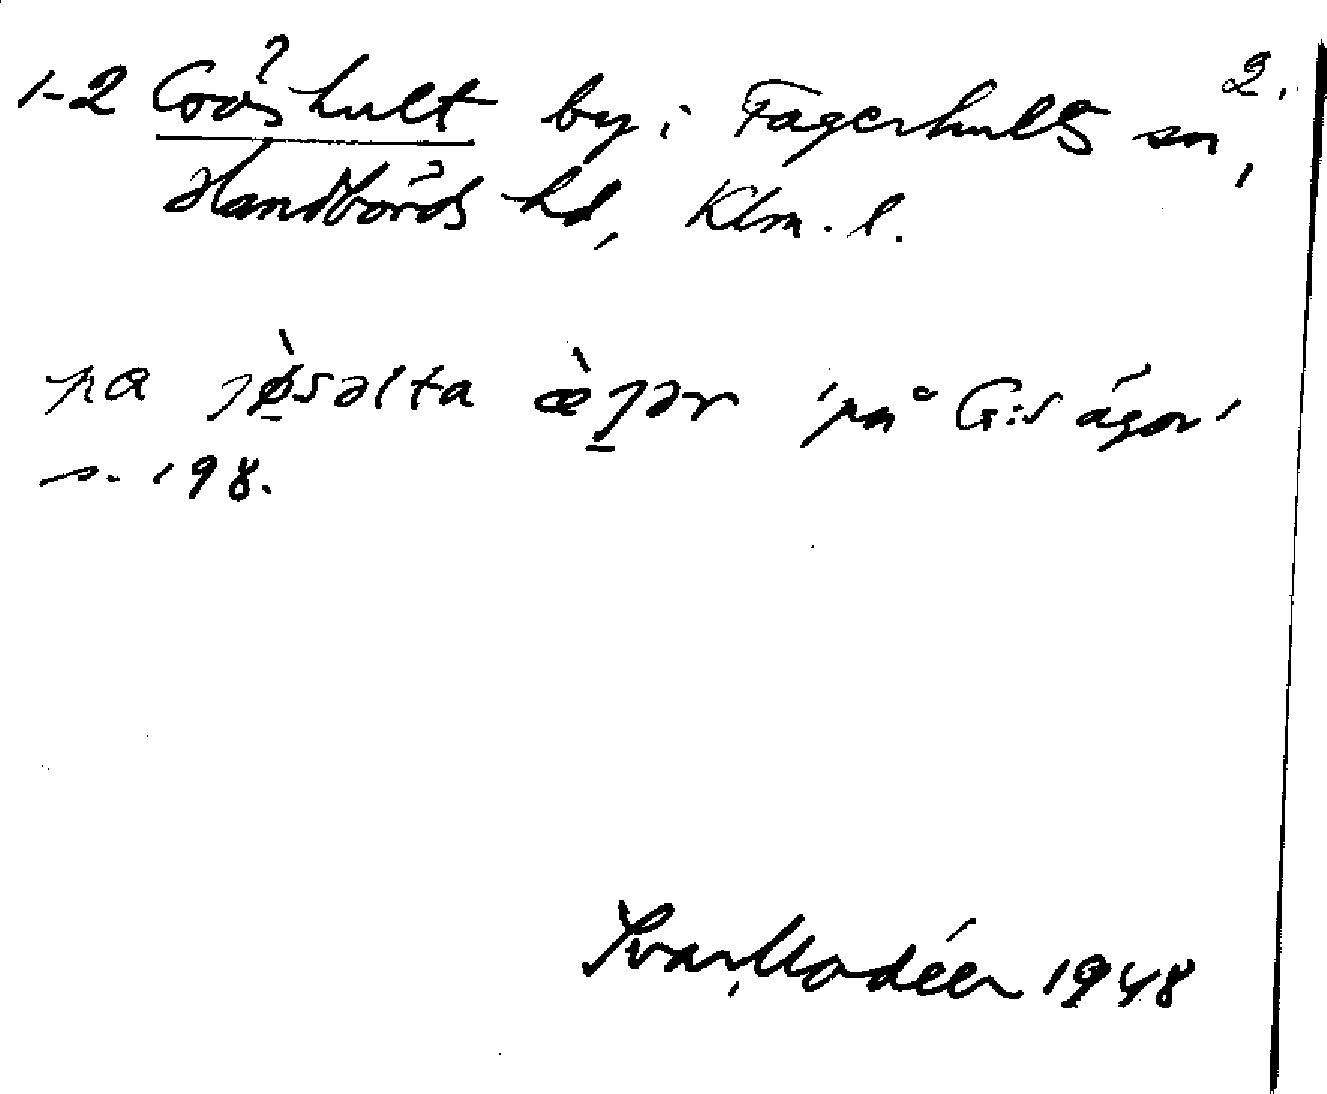 2.
1-2 Göshult by i Fagerhults sn,
Handbörds hd, Klm. l.
pa jø̀səlta æ̀gər 'på G:s ägor'
s. 198.
Ivar Modéer 1948